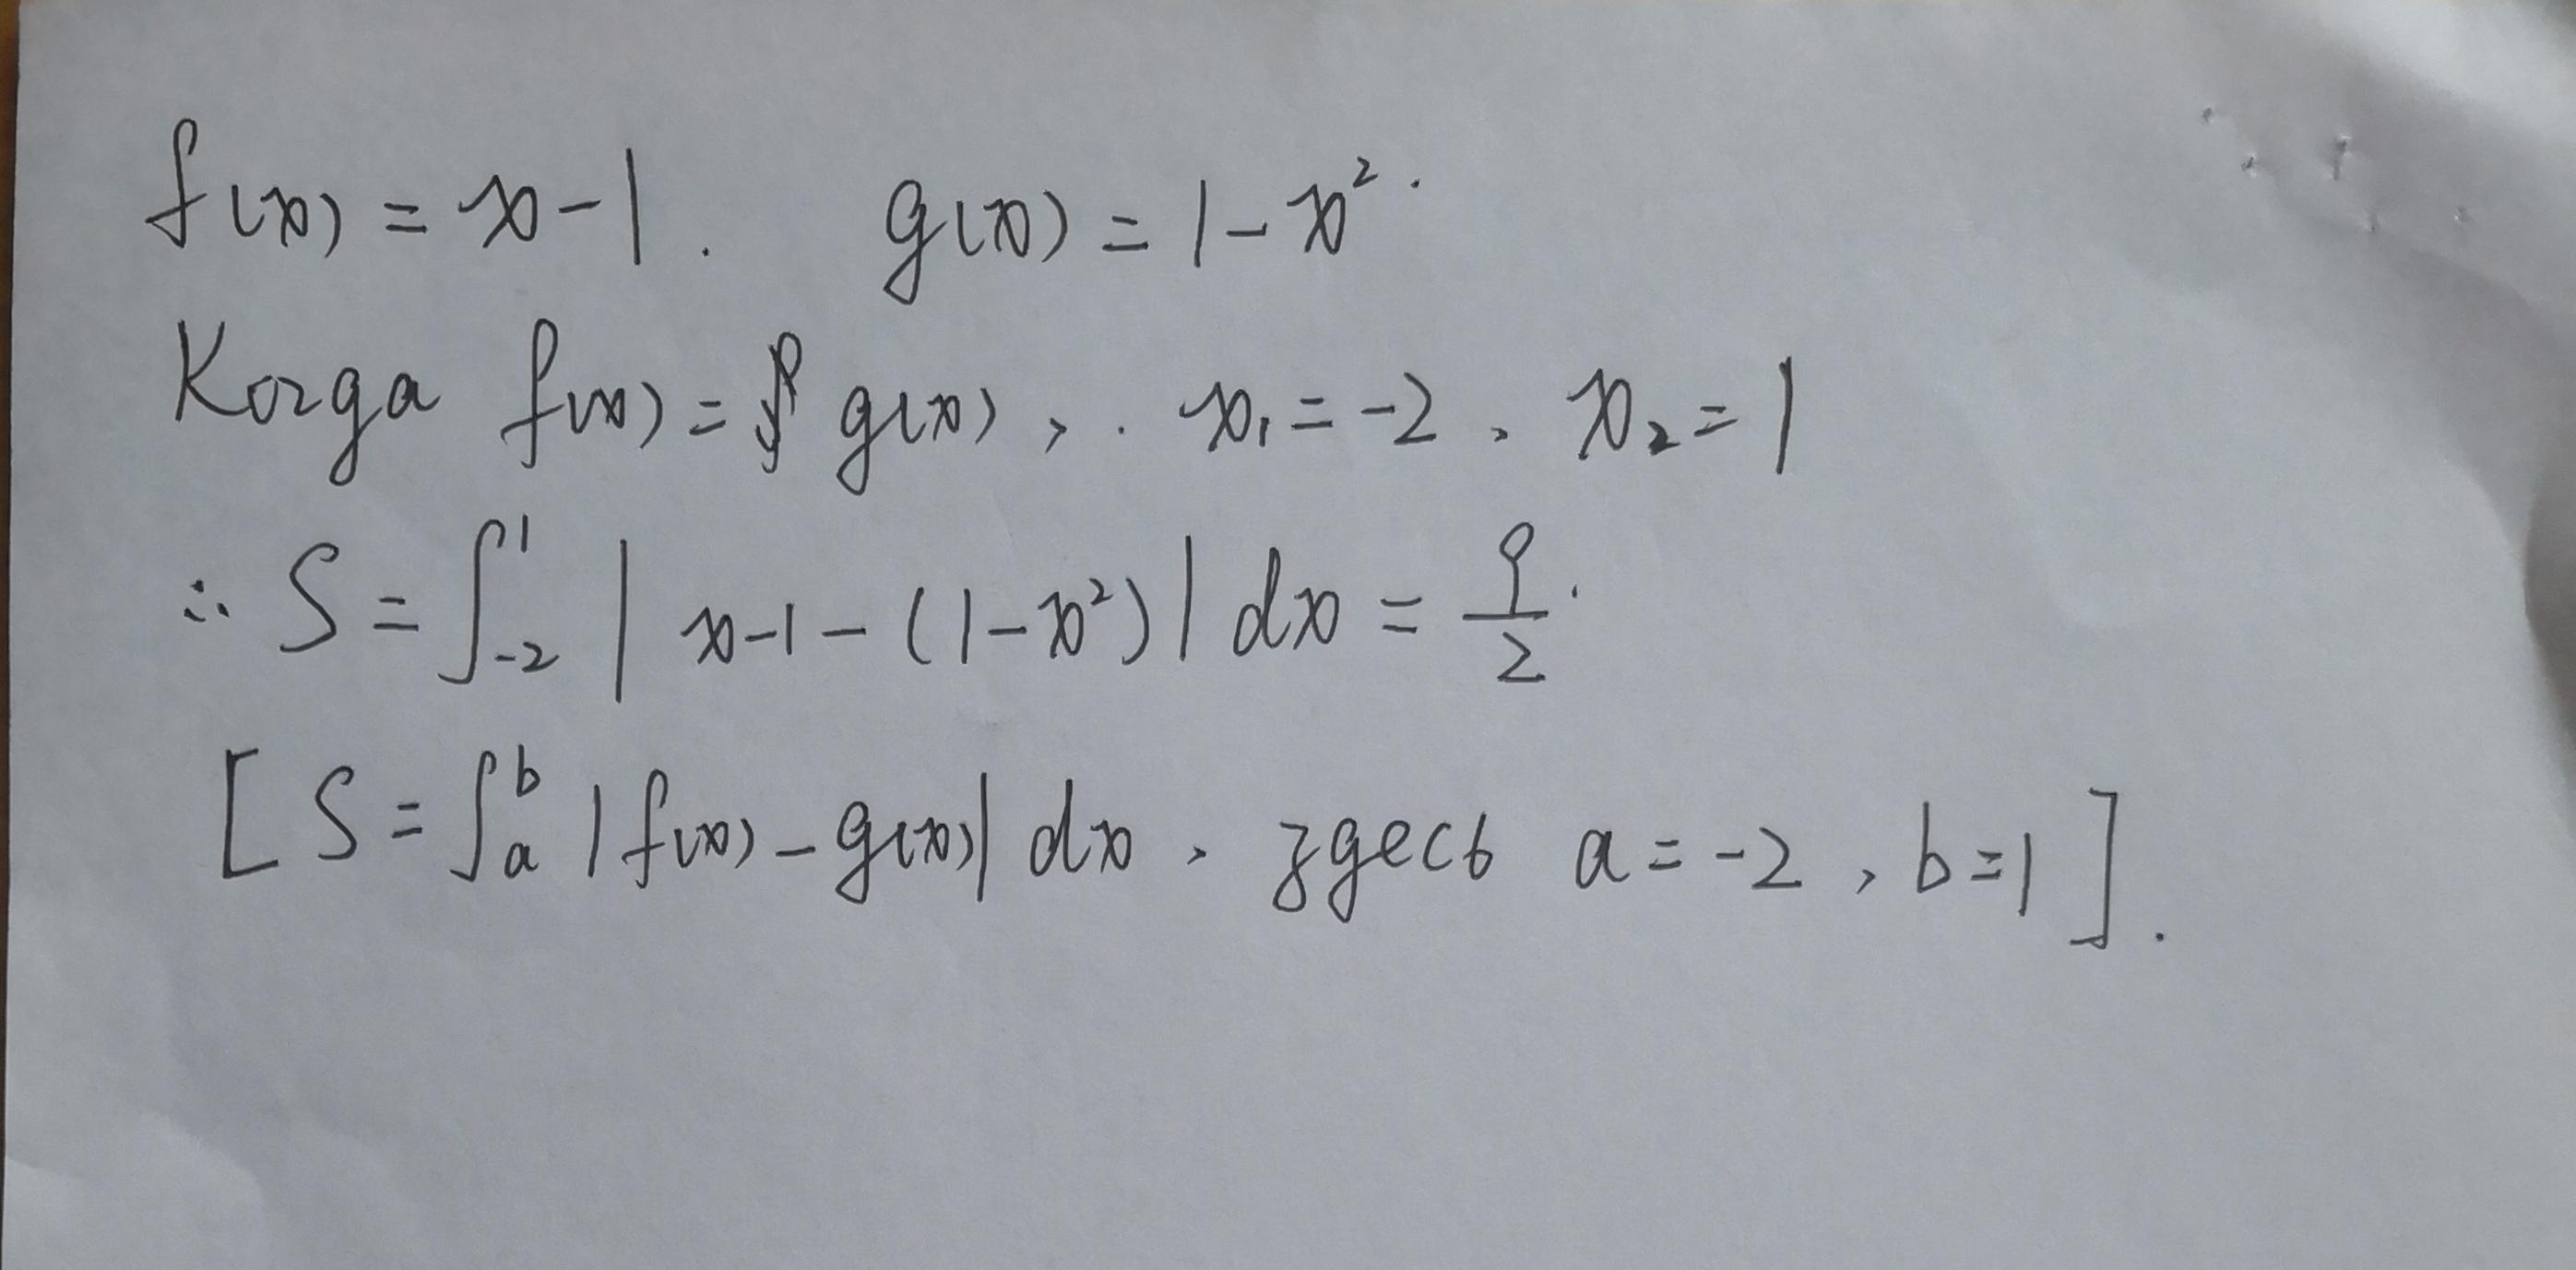 f(x) = x-1. g(x) = 1-x².
Когда f(x) = g(x), . x₁ = -2, x₂ = 1
∴ S = ∫₋₂¹ | x-1-(1-x²)| dx = 9/2.
[S = ∫ₐᵇ |f(x)-g(x)| dx, здесь a = -2, b = 1].